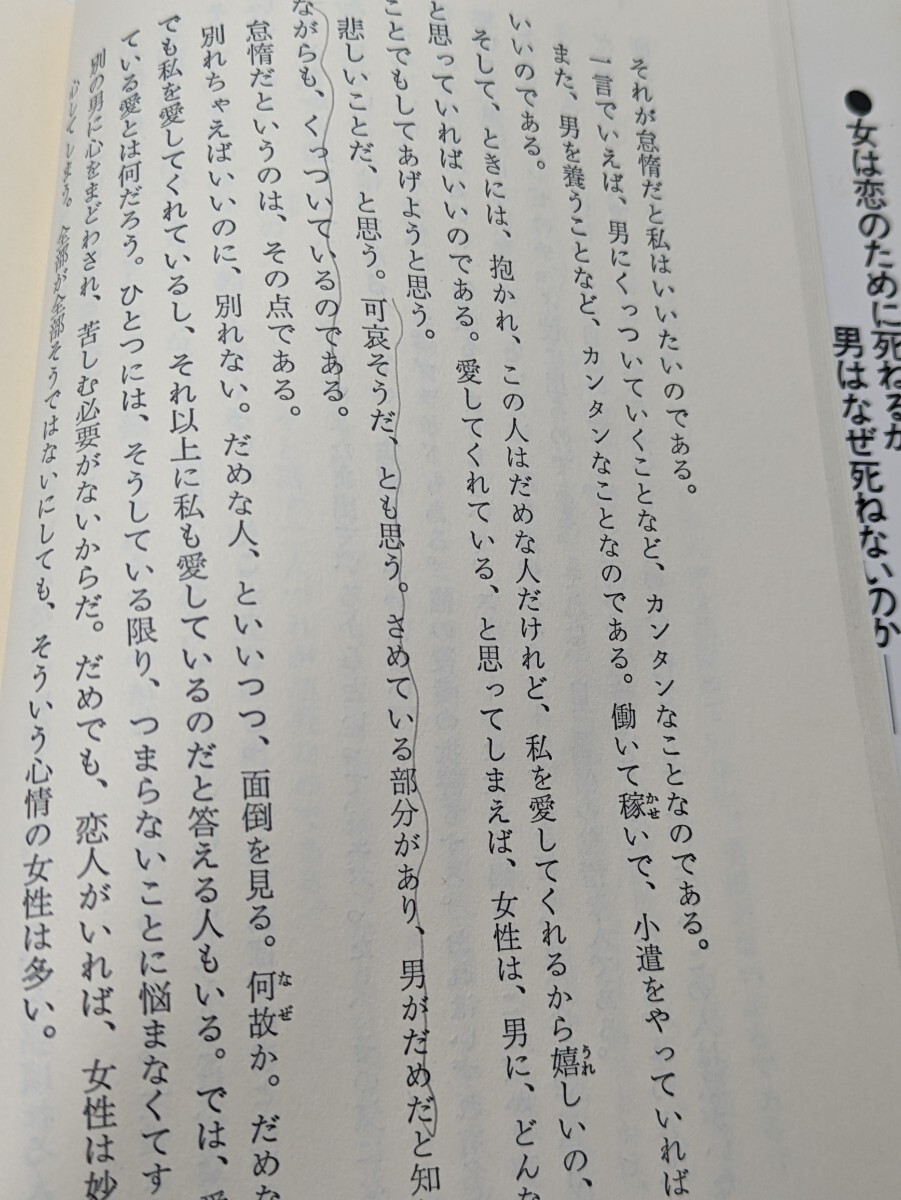 ●女は恋のために死ねるか
男はなぜ死ねないのか
それが怠惰だと私はいいたいのである。
一言でいえば、男にくっついていくことなど、カンタンなことなのである。
また、男を養うことなど、カンタンなことなのである。働いて稼いで、小遣をやっていれば
いいのである。
そして、ときには、抱かれ、この人はだめな人だけれど、私を愛してくれるから嬉しいの、
と思っていればいいのである。愛してくれている、と思ってしまえば、女性は、男に、どんな
ことでもしてあげようと思う。
悲しいことだ、と思う。可哀そうだ、とも思う。さめている部分があり、男がだめだと知
ながらも、くっついているのである。
怠惰だというのは、その点である。
別れちゃえばいいのに、別れない。だめな人、といいつつ、面倒を見る。何故か。だめな
でも私を愛してくれているし、それ以上に私も愛しているのだと答える人もいる。では、愛
ている愛とは何だろう。ひとつには、そうしている限り、つまらないことに悩まなくてす
別の男に心をまどわされ、苦しむ必要がないからだ。だめでも、恋人がいれば、女性は妙
心してしまう。全部が全部そうではないにしても、そういう心情の女性は多い。